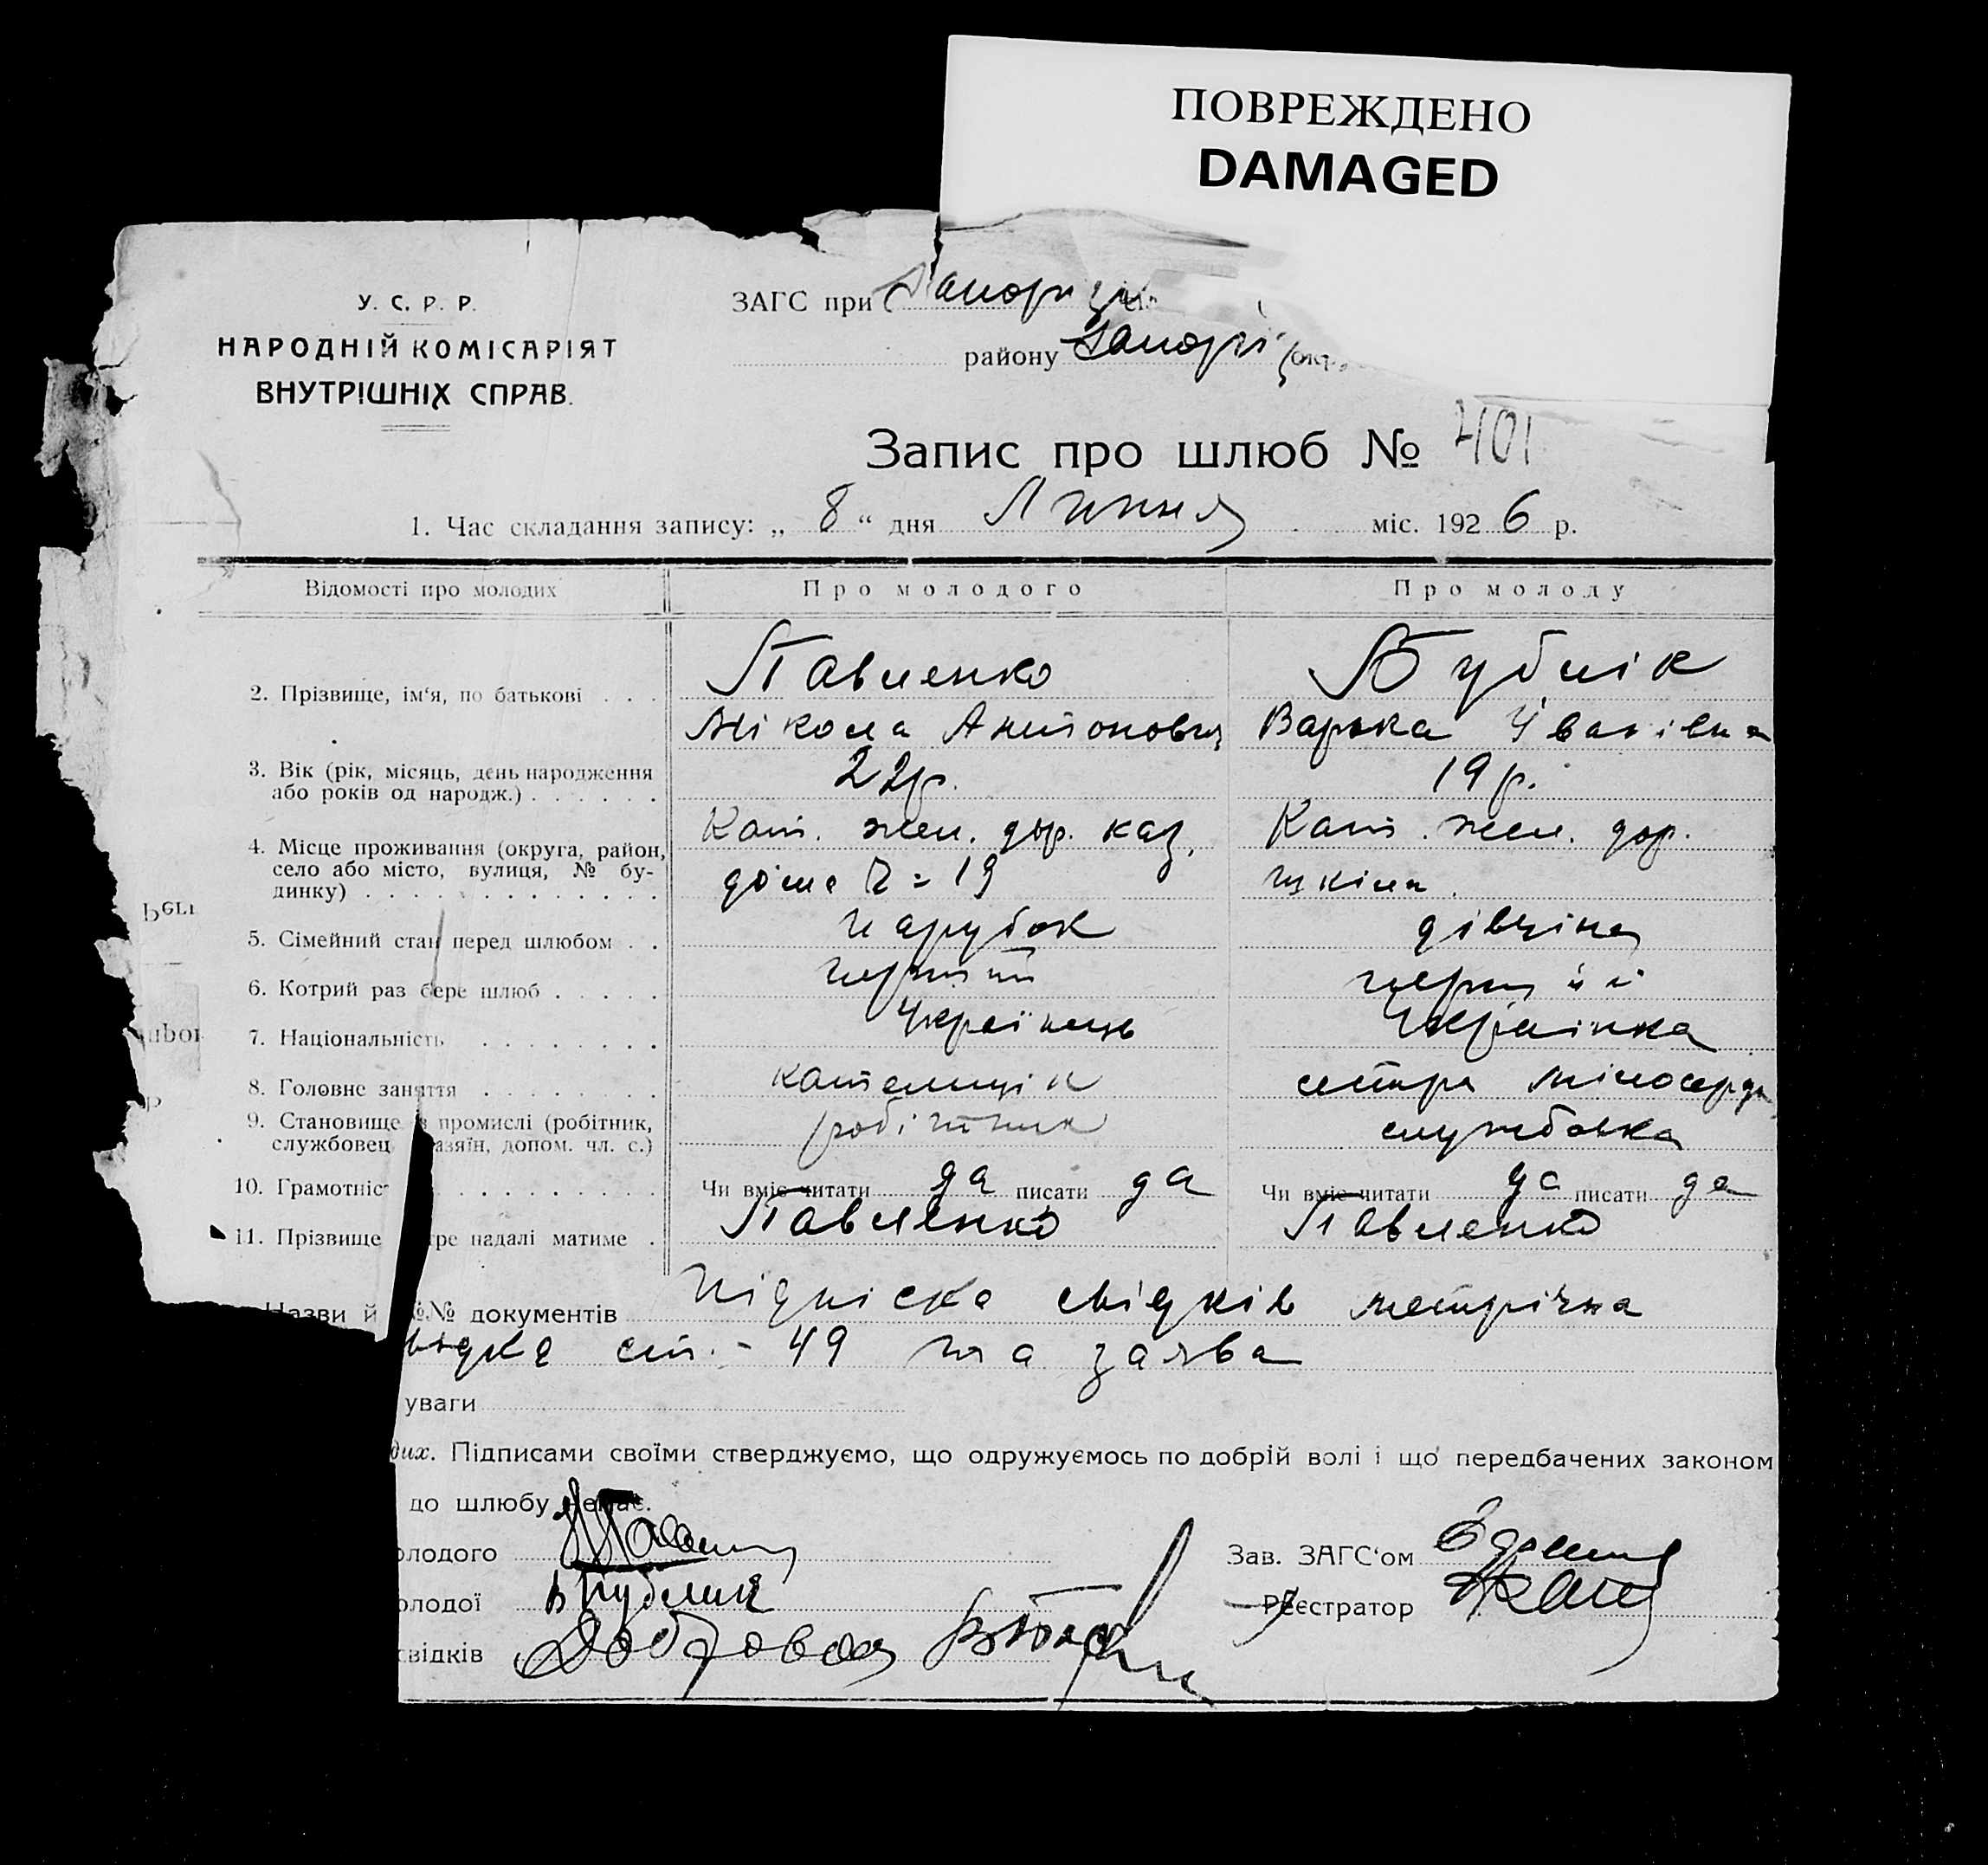 ПОВРЕЖДЕНО
DAMAGED
У. С. Р. Р.
НАРОДНІЙ КОМІСАРІЯТ
ВНУТРІШНІХ СПРАВ.
ЗАГС при
району Запоріз окр.
Запис про шлюб № 401
1. Час складання запису: „ 8 “ дня Липня міс. 1926 р.
Відомості про молодих Про молодого Про молоду
2. Прізвище, ім‘я, по батькові . . . Павленко Бублік
Мікола Антонович Варька Іванівна
3. Вік (рік, місяць, день народження або років од народж.) . . . . . . 22р. 19 р.
4. Місце проживання (округа, район, село або місто, вулиця, № будинку) . . . . . . . . . . . . .
Кат. жел. дор. каз. Кат. жел. дор.
19 шкіла.
5. Сімейний стан перед шлюбом . . парубок дівчіна
6. Котрий раз бере шлюб . . . . . перший
7. Національність . . . . . . . . Українець Українка
8. Головне заняття . . . . . . . . сестра
9. Становище в промислі (робітник, службовец азяїн, допом. чл. с.) робітник службовка
10. Грамотніс . . . . . . . . . Чи вміє читати да писати да Чи вміє читати да писати да
11. Прізвище тре надалі матиме . Павленко Павленко
Назви й №№ документів підпіска свідків метрічна
ст. - 49 та заява
уваги
дих. Підписами своїми стверджуємо, що одружуємось по добрій волі і що передбачених законом
до шлюбу немає.
олодого
Зав. ЗАГС‘ом
олодої В Бублик
Реєстратор
свідків